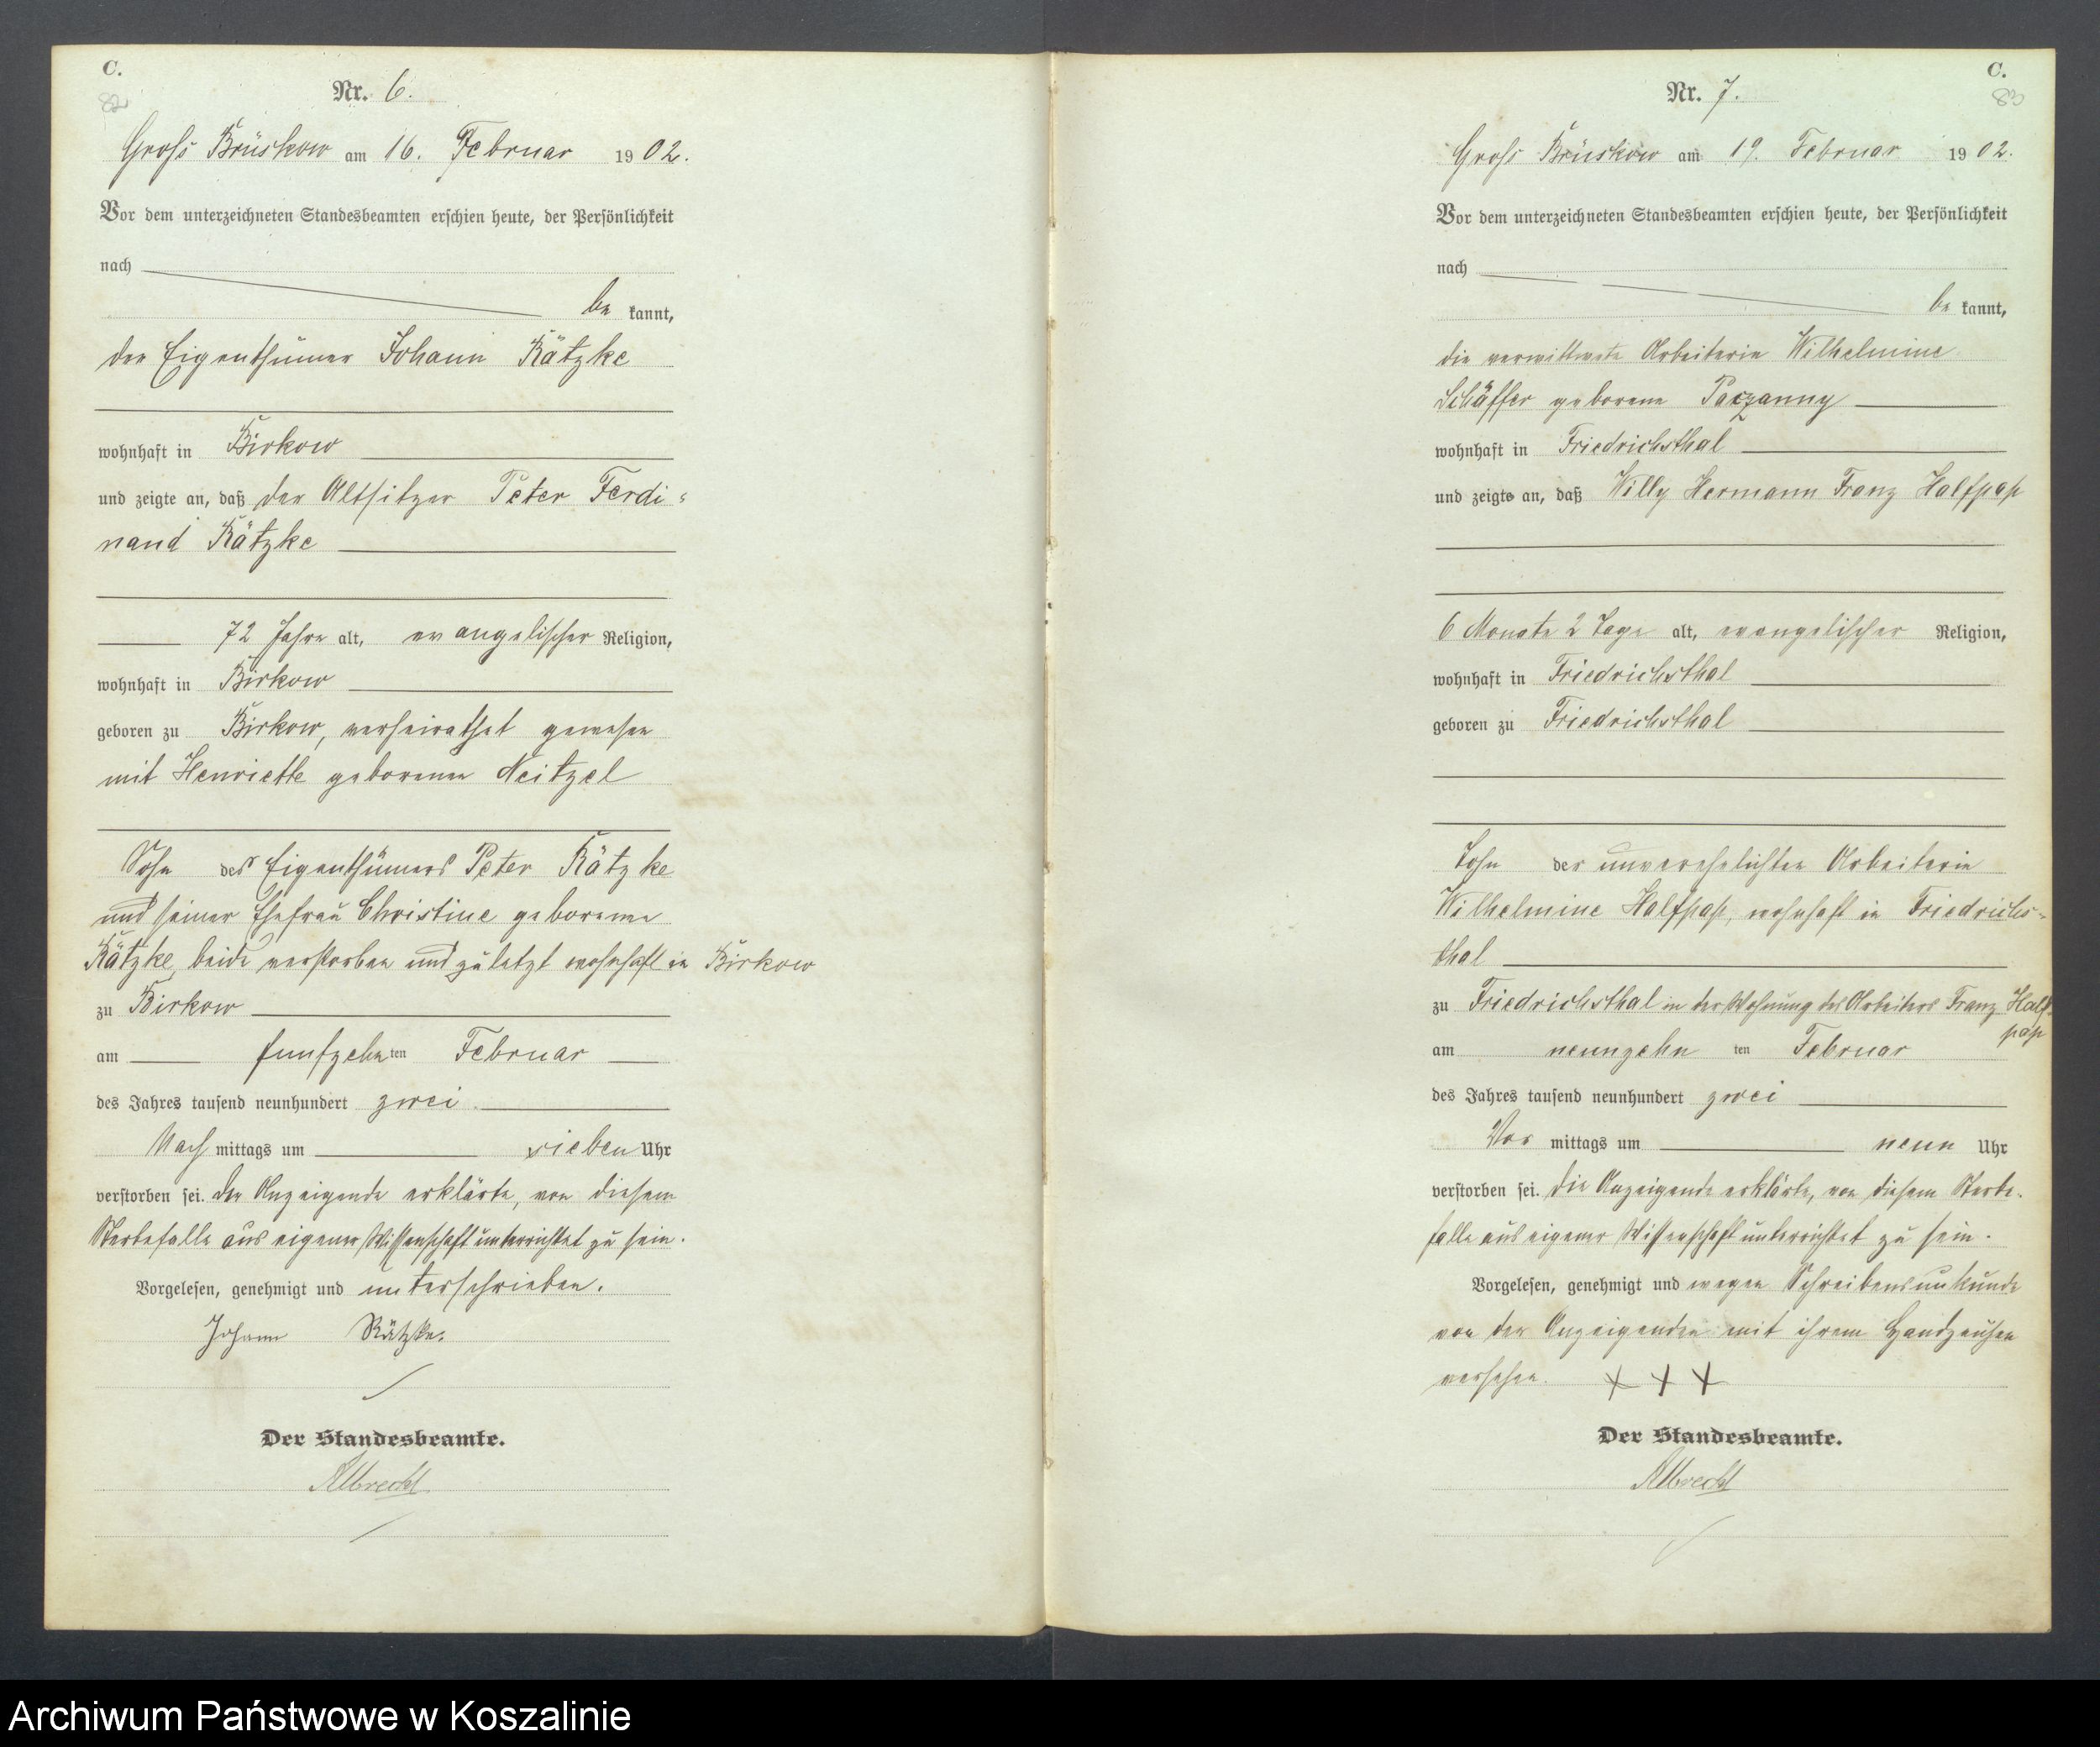 C.
82
Nr. 6.
Gross Brüskow am 16. Februar 1902.
Vor dem unterzeichneten Standesbeamten erschien heute, der Persönlichkeit
nach
be kannt,
der Eigenthümer Johann Rätzke
wohnhaft in Birkow
und zeigte an, daß der Altsitzer Peter Ferdi-
nand Rätzke
72 Jahre alt, evangelischer Religion,
wohnhaft in Birkow
geboren zu Birkow, verheirathet gewesen
mit Henriette geborenen Neitzel
Sohn des Eigenthümers Peter Rätzke
und seiner Ehefrau Christine geborenen
Rätzke, beide verstorben und zuletzt wohnhaft in Birkow
zu Birkow
am funfzehnten Februar
des Jahres tausend neunhundert zwei
Nachmittags um sieben Uhr
verstorben sei. Der Anzeigende erklärte, von diesem
Sterbefalle aus eigener Wissenschaft unterrichtet zu sein.
Vorgelesen, genehmigt und unterschrieben.
Johann Rätzke.
Der Standesbeamte.
Albrecht
C.
83
Nr. 7.
Gross Brüskow am 19. Februar 1902.
Vor dem unterzeichneten Standesbeamten erschien heute, der Persönlichkeit
nach
be kannt,
die verwittwete Arbeiterin Wilhelmine
Schäffer geborene
wohnhaft in Friedrichsthal
und zeigte an, daß Willy Hermann Franz Halfpap
6 Monate 2 Tage alt, evangelischer Religion,
wohnhaft in Friedrichsthal
geboren zu Friedrichsthal
Sohn der unverehelichten Arbeiterin
Wilhelmine Halfpap, wohnhaft in Friedrichs-
thal
zu Friedrichsthal in der Wohnung des Arbeiters Franz Half-
pap
am neunzehnten Februar
des Jahres tausend neunhundert zwei
Vormittags um neun Uhr
verstorben sei. Die Anzeigende erklärte, von diesem Sterbe-
falle aus eigener Wissenschaft unterrichtet zu sein.
Vorgelesen, genehmigt und wegen Schreibensunkunde
von der Anzeigenden mit ihrem Handzeichen
versehen. + + +
Der Standesbeamte.
Albrecht
Archiwum Państwowe w Koszalinie